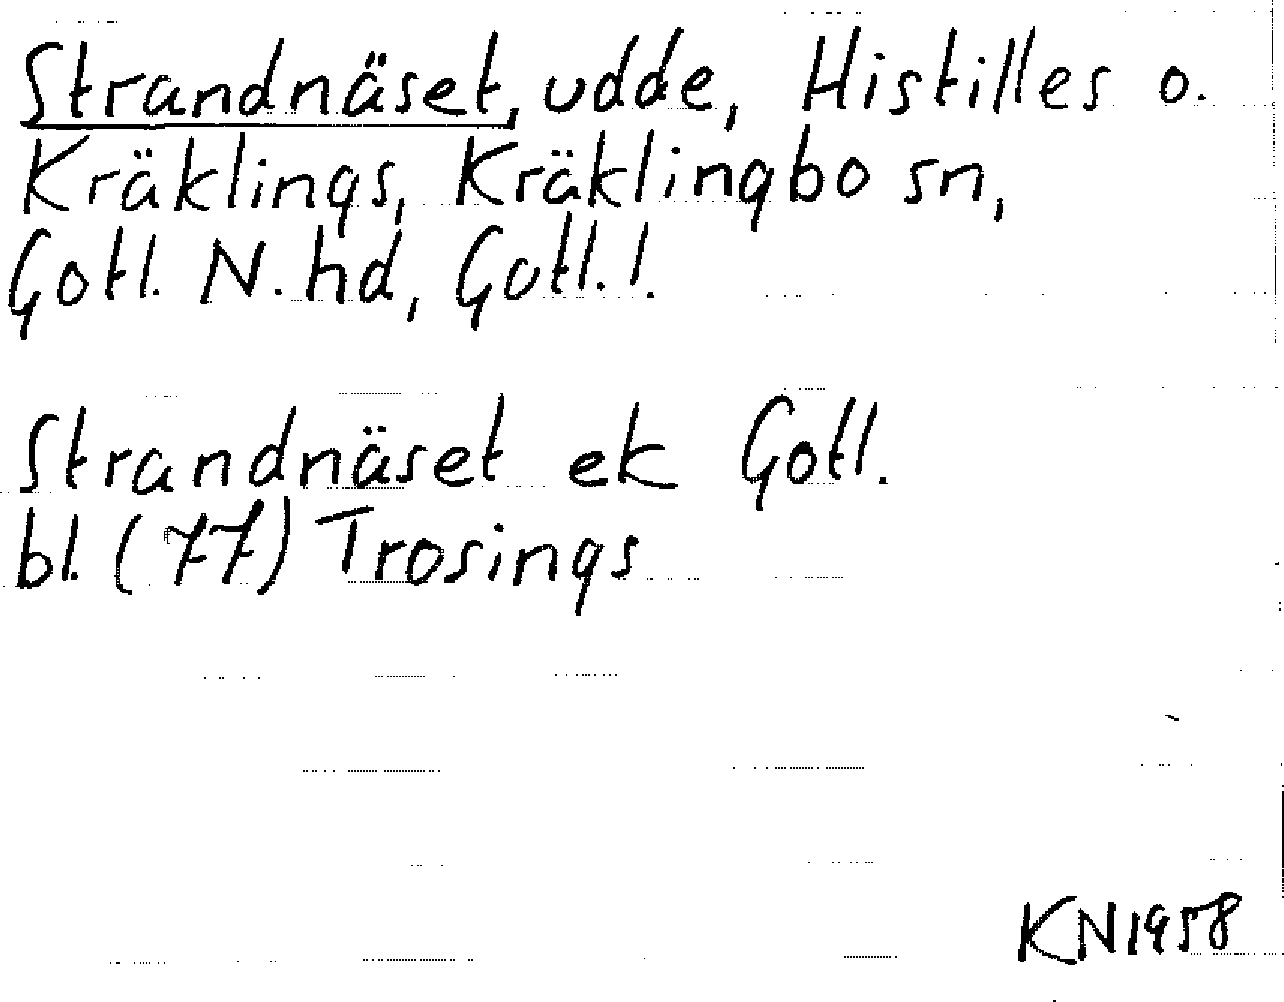 Strandnäset, udde, Histilles o.
Kräklings, Kräklingbo sn,
Gotl. N. hd, Gotl. l.
Strandnäset ek Gotl.
bl. (77) Trosings
KN1958